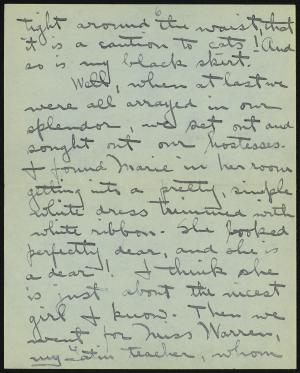 tight around the waist, that
it is a caution to cats! And
so is my black skirt.
Well, when at last we
were all arrayed in our
splendor, we set out and
sought out our hostesses.
I found Marie in her room
getting into a pretty, simple
white dress trimmed with
white ribbon. She looked
perfectly dear, and she is
a dear! I think she
is just about the nicest
girl I know. Then we
went for Miss Warren,
my Latin teacher, whom